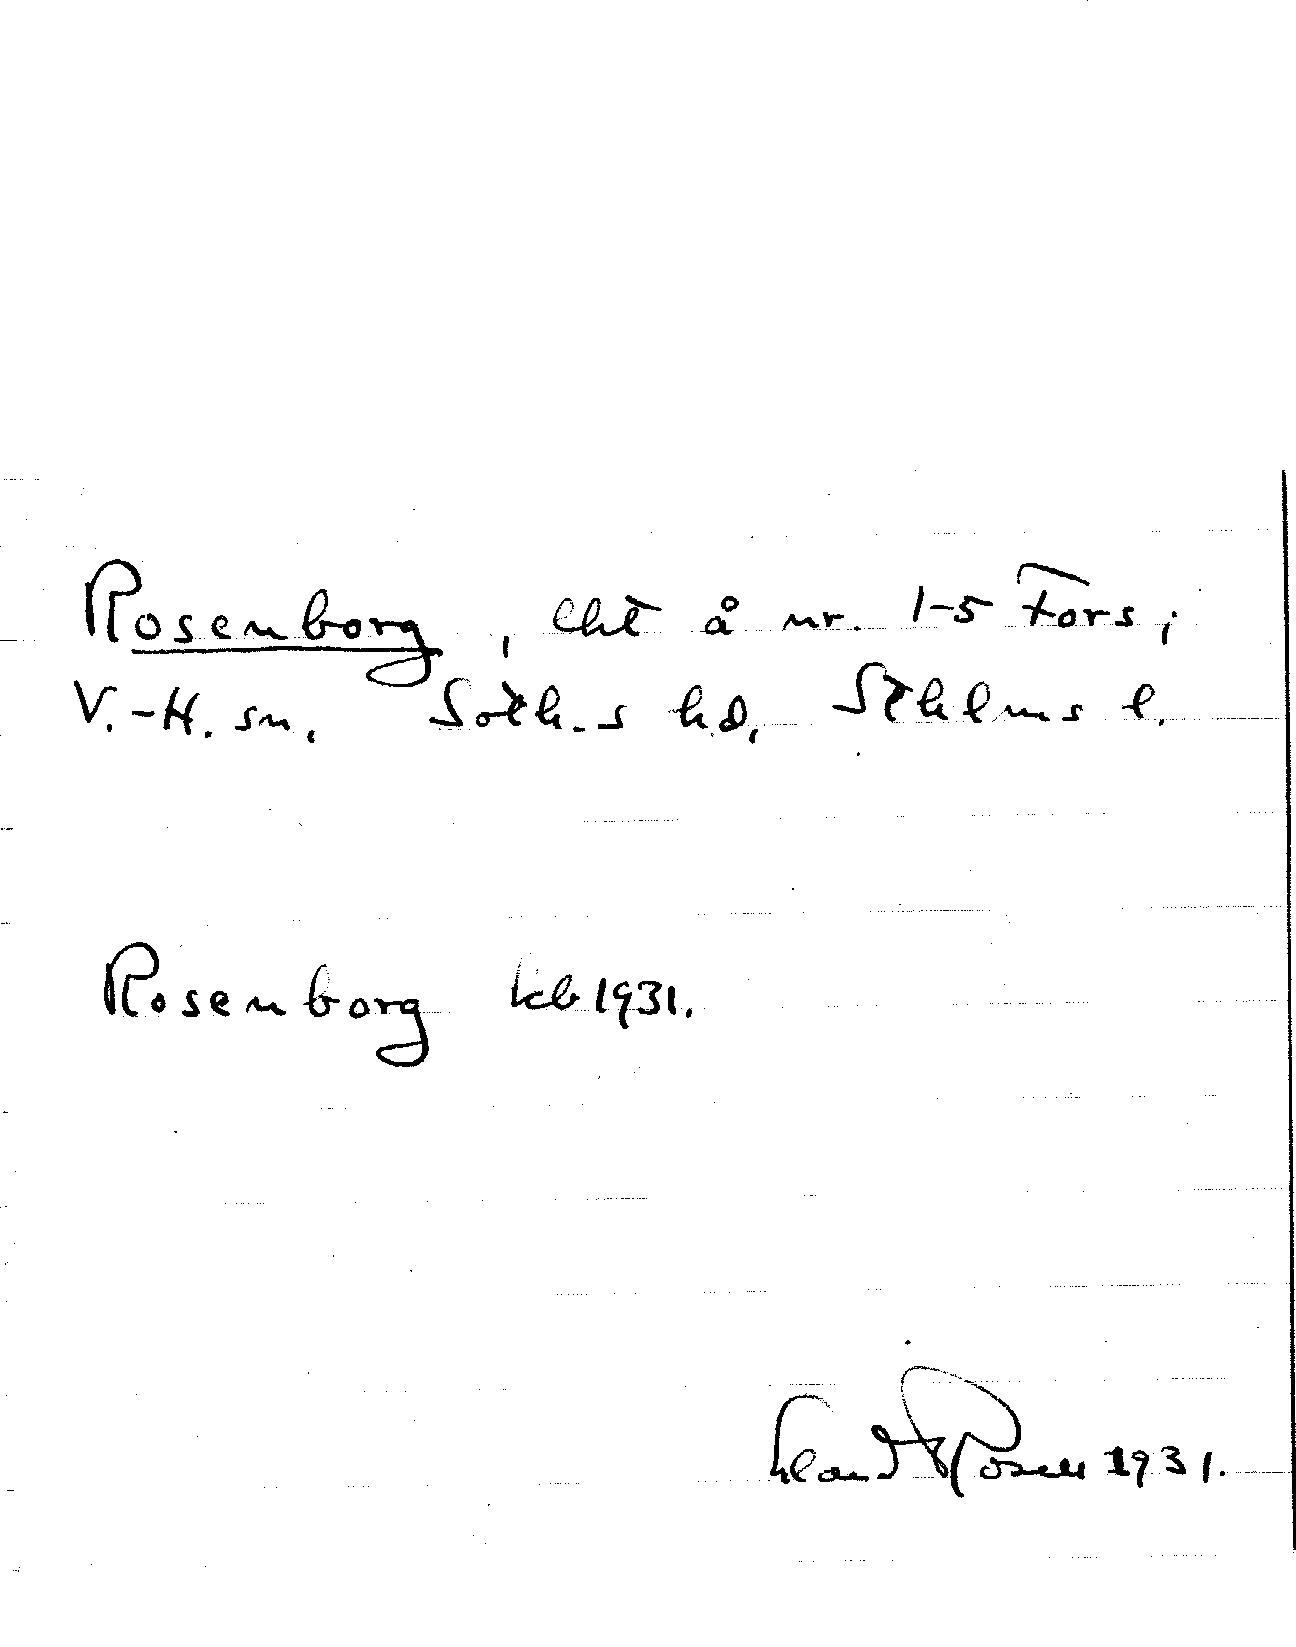 Rosenborg, lht å nr. 1-5 Fors;
V.-H. sn. Soth.s hd, Sthlms l.
Rosenborg kb 1931.
1931.